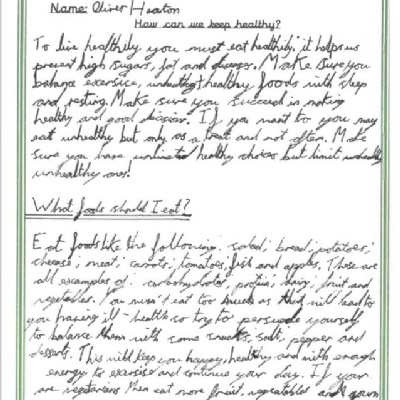 Name: Oliver Heaton
How can we keep healthy?
To live healthily you must eat healthily, it helps us
prevent high sugars, fat and diseases. Make sure you
balance exercise, healthy foods with sleep
and resting. Make sure you succeed in making
healthy and good decisions. If you want to you may
eat unhealthy but only as a treat and not often. Make
sure you have unlimited healthy choices but limit
unhealthy ones!
What foods should I eat?
Eat foods like the following: salad; bread; potatoes;
cheese; meat; carrots; tomatoes, fish and apples. These are
all examples of: carbohydrates, protein; dairy, fruit and
vegetables. You musn't eat too much as that will lead to
you having ill-health so try to persuade yourself
to balance them with some snacks, salt, pepper and
desserts. This will keep you happy, healthy and with enough
energy to exercise and continue your day. If your
are vegetarians then eat more fruit, vegetables and